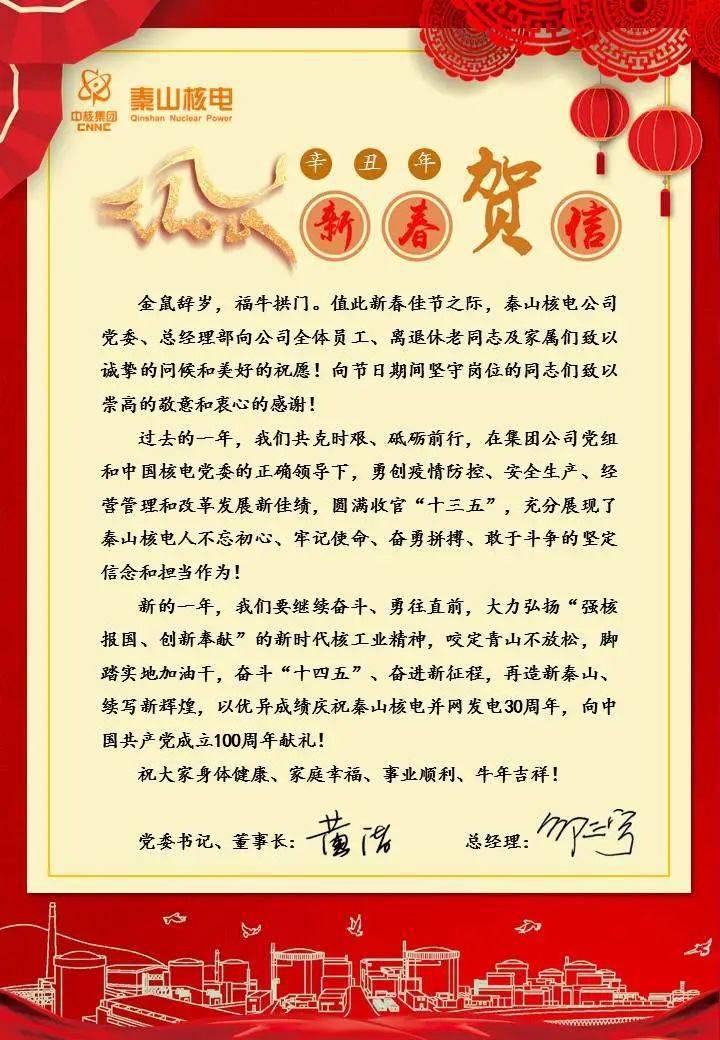 中核集团
CNNC
秦山核电
Qinshan Nuclear Power
辛丑年
新春贺信
金鼠辞岁，福牛拱门。值此新春佳节之际，秦山核电公司
党委、总经理部向公司全体员工、离退休老同志及家属们致以
诚挚的问候和美好的祝愿！向节日期间坚守岗位的同志们致以
崇高的敬意和衷心的感谢！
过去的一年，我们共克时艰、砥砺前行，在集团公司党组
和中国核电党委的正确领导下，勇创疫情防控、安全生产、经
营管理和改革发展新佳绩，圆满收官“十三五”，充分展现了
秦山核电人不忘初心、牢记使命、奋勇拼搏、敢于斗争的坚定
信念和担当作为！
新的一年，我们要继续奋斗、勇往直前，大力弘扬“强核
报国、创新奉献”的新时代核工业精神，咬定青山不放松，脚
踏实地加油干，奋斗“十四五”、奋进新征程，再造新秦山、
续写新辉煌，以优异成绩庆祝秦山核电并网发电30周年，向中
国共产党成立100周年献礼！
祝大家身体健康、家庭幸福、事业顺利、牛年吉祥！
党委书记、董事长：黄潜 总经理：